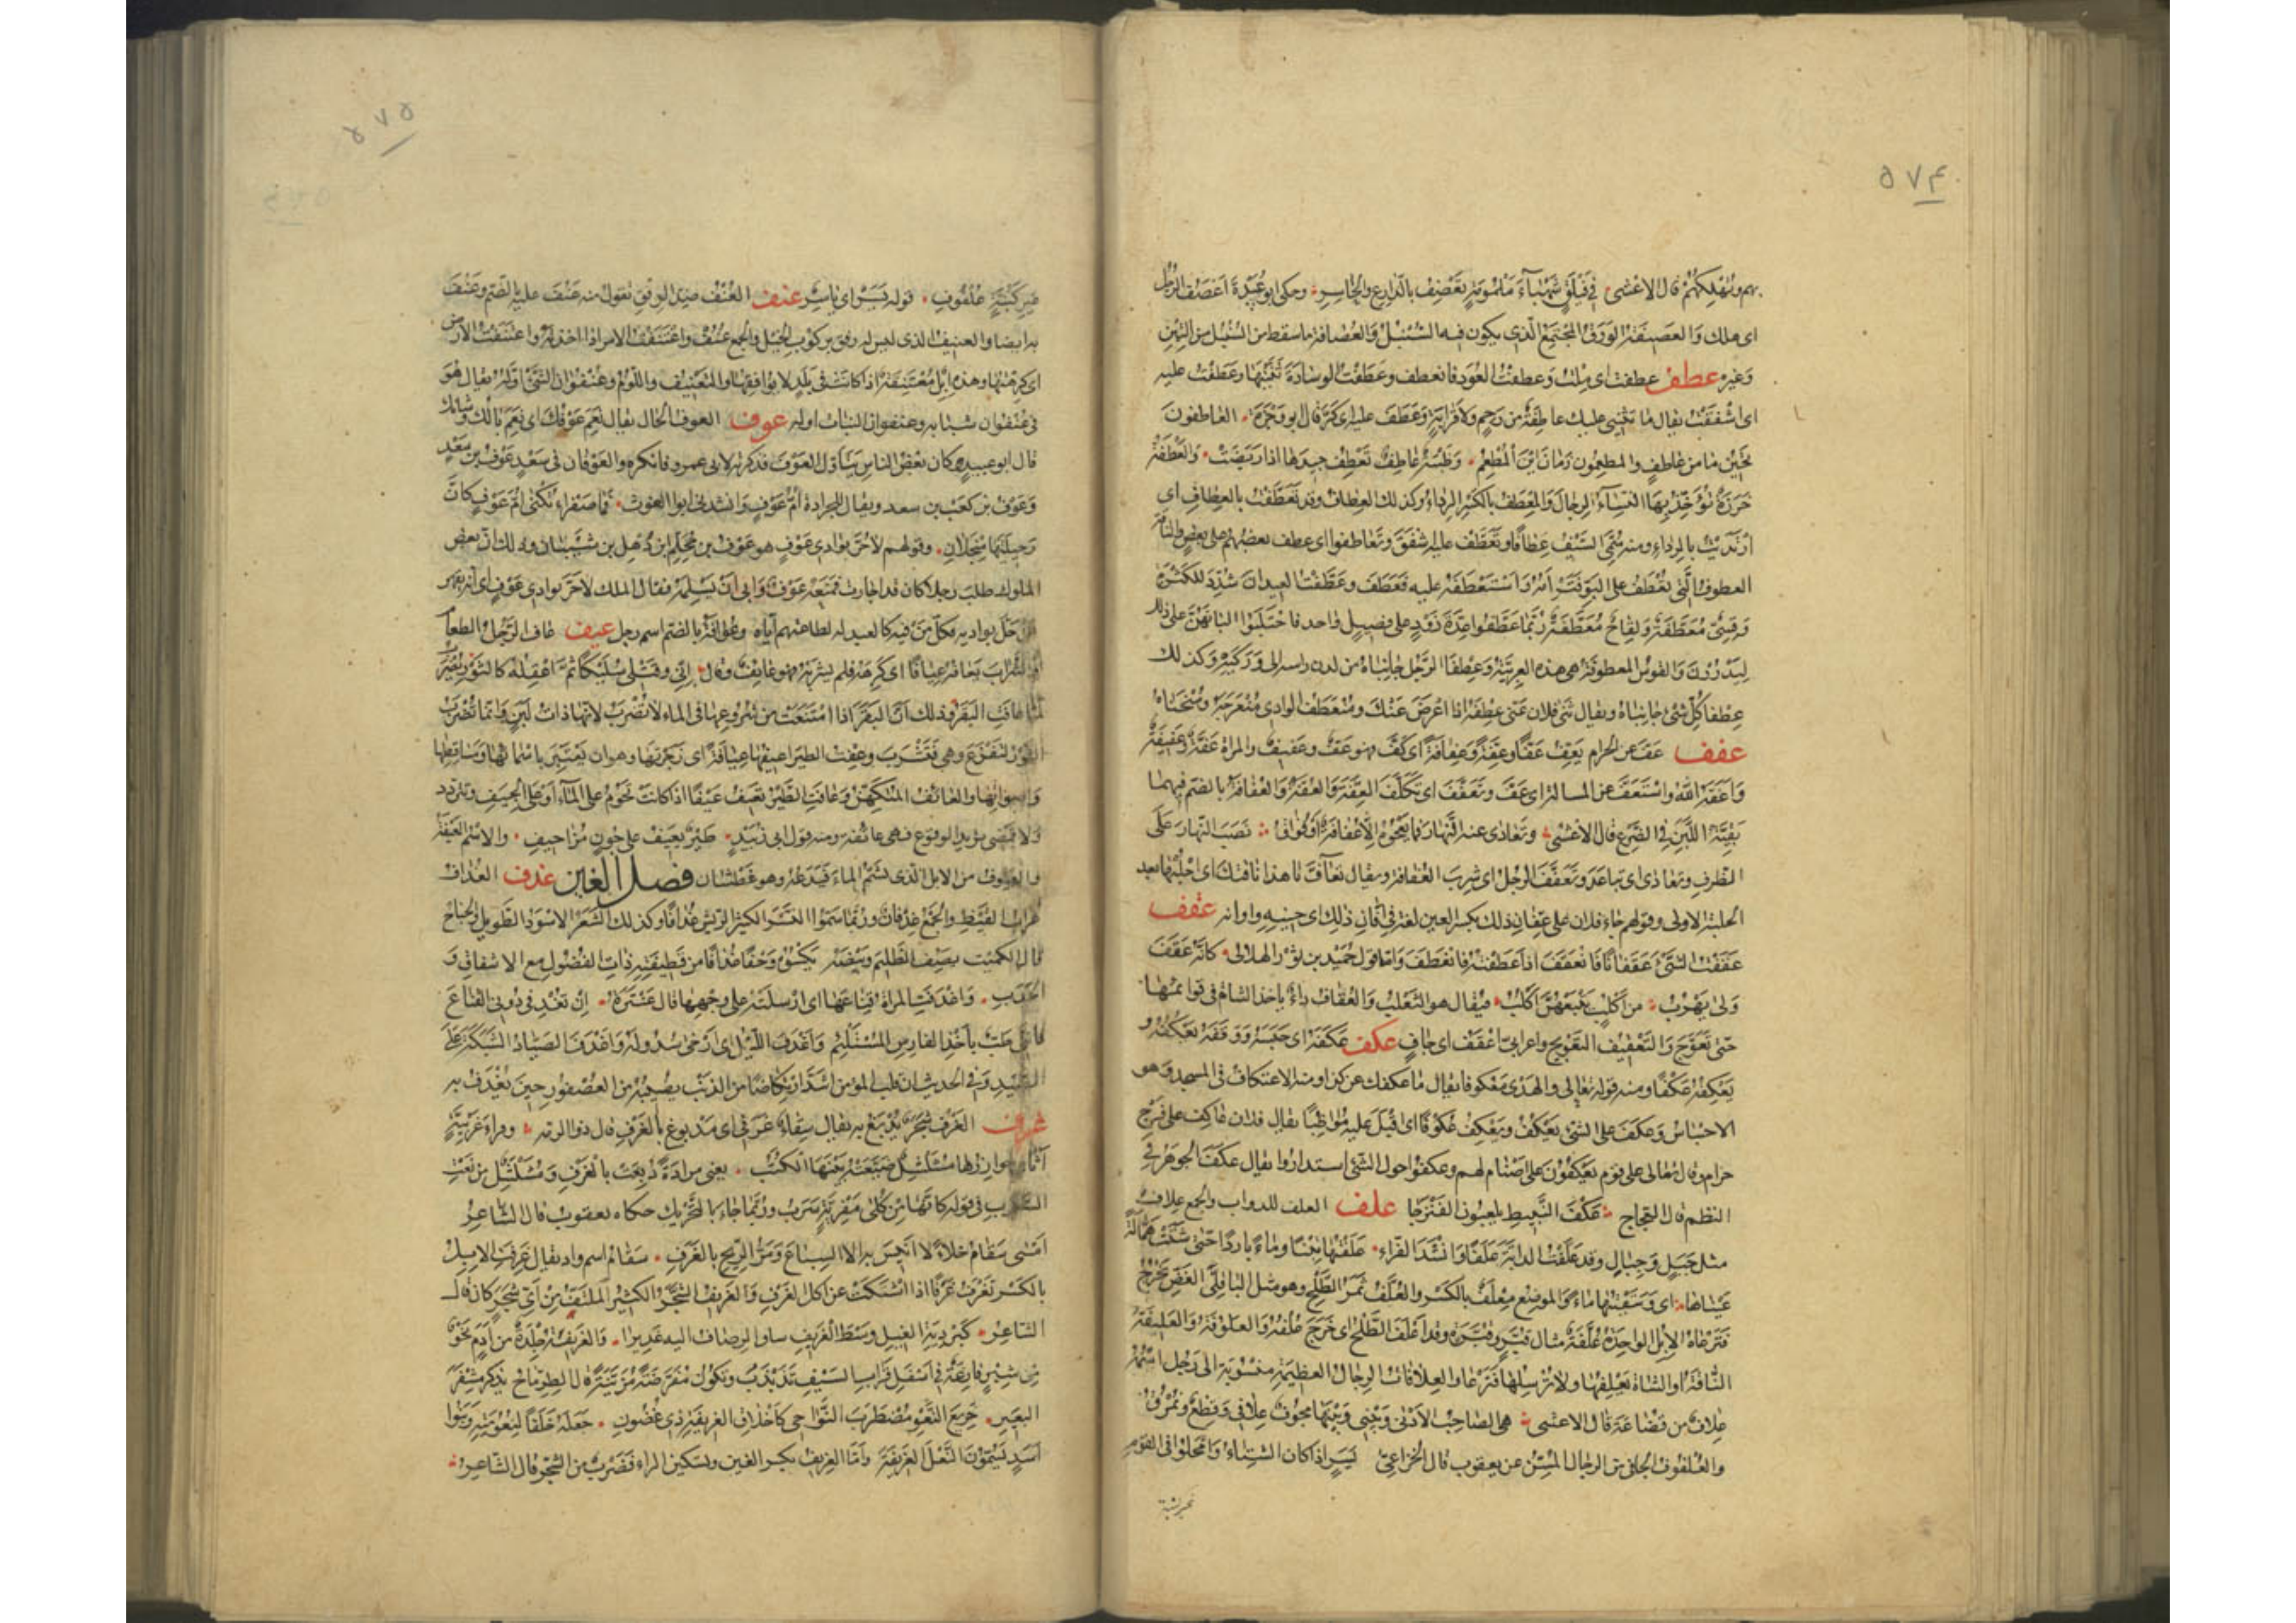 ٥٧٤
بهم وتهلكهم قال الاعشى في فيلق شهباء ملمومة تعصف بالدارع والحاسر وحكى ابو عبيدة اعصف الرجل
اى هلك والعصيفة الورق المجتمع الذى يكون فيه السنبل والعصافة ما سقط من السنبل من التبن
وغيره عطف عطفت اى ملت وعطفت العود فانعطف وعطفت الوسادة ثنيتها وعطفت عليه
اى اشفقت يقال ما تثنيني عليك عاطفة من رحم ولا قرابة وعطف عليه اى كر قال ابو وجزة العاطفون
تحين ما من عاطف والمطعمون زمان اين المطعم وظبية عاطف تعطف جيدها اذا ربضت والعطفة
خرزة تؤخذ بها النساء الرجال والمعطف بالكسر الرداء وكذلك العطاف وقد تعطفت بالعطاف اى
ارتديت بالرداء ومنه سمى السيف عطافا وتعطف عليه شفق وتعاطفوا اى عطف بعضهم على بعض والناقة
العطوف التى تعطف على البو فترأمه واستعطفه عليه فعطف وعطفت العيدان شدد للكثرة
وقسى معطفة ولقاح معطفة ربما عطفوا عدة ذود على فصيل واحد فاحتلبوا البانهن على ذلك
ليدررن والقوس المعطوفة هى هذه العربية وعطفا الرجل جانباه من لدن راسه الى وركيه وكذلك
عطفا كل شئ جانباه ويقال ثنى فلان عنى عطفه اذا اعرض عنك ومنعطف الوادى منعرجه ومنحناه
عفف عف عن الحرام يعف عفا وعفة وعفافة اى كف فهو عف وعفيف والمراة عفة وعفيفة
واعفه الله واستعف عن المسالة اى عف وتعفف اى تكلف العفة والعفة والعفافة بالضم فيهما
بقية اللبن فى الضرع قال الاعشى وتعادى عنه النهار فما يعجوه الا عفافة او فواق نصب النهار على
الظرف وتعادى اى تباعد وتعفف الرجل اى شرب العفافة ويقال تعاف يا هذا ناقتك اى احلبها بعد
الحلبة الاولى وقولهم جاء فلان على عفان ذلك بكسر العين لغة فى افان ذلك اى حينه واوانه عقف
عقفت الشئ عقفا فانعقف اذا عطفته فانعطف واما قول حميد بن ثور الهلالى كانه عقف
ولى يهرب من اكلب يتبعهن اكلب فيقال هو الثعلب والعقاف داء ياخذ الشاة فى قوائمها
حتى تعوج والتعقيف التعويج واعرابى اعقف اى جاف عكف عكفه اى حبسه ووقفه يعكفه و
يعكفه عكفا ومنه قوله تعالى والهدى معكوفا يقال ما عكفك عن كذا ومنه الاعتكاف فى المسجد وهو
الاحتباس وعكف على الشئ يعكف ويعكف عكوفا اى اقبل عليه مواظبا يقال فلان عاكف على فرج
حرام وقال تعالى على قوم يعكفون على اصنام لهم وعكفوا حول الشئ استداروا يقال عكف الجوهر فى
النظم قال العجاج عكف النبيط يلعبون الفنزجا علف العلف للدواب والجمع علاف
مثل جبل وجبال وقد علفت الدابة علفا وانشد الفراء علفتها تبنا وماء باردا حتى شتت همالة
عيناها اى وسقيتها ماء والموضع معلف بالكسر والعلف ثمر الطلح وهو مثل الباقلى الغض يخرج
فترعاه الابل الواحدة علفة مثال قبر وقبرة وقد اعلف الطلح اى خرج علفه والعلوفة والعليفة
الناقة او الشاة تعلفها ولا ترسلها فترعى والعلافيات الرجال العظيمة منسوبة الى رجل اسمه
علاف من قضاعة قال الاعشى هى الصاحب الادنى وبينى وبينها مجوف علافى وقطع ونمرق
والعلفوف الجافى من الرجال المسن عن يعقوب قال الخزاعى يسر اذا كان الشتاء وامحلوا فى القوم
غير كبنة
٥٧٥
غير كبنة علفوف قوله يسر اى ياسر عنف العنف ضد الرفق تقول منه عنف عليه بالضم وعنف
به ايضا والعنيف الذى ليس له رفق بركوب الخيل والجمع عنف واعتنفت الامر اذا اخذته واعتنفت الارض
اى كرهتها وهذه ابل معتنفة اذا كانت فى بلد لا يوافقها والتعنيف واللوم وعنفوان الشئ اوله يقال هو
فى عنفوان شبابه وعنفوان النبات اوله عوف العوف الحال يقال نعم عوفك اى نعم بالك وشانك
قال ابو عبيد وكان بعض الناس يتاول العوف فذكرته لابى عمرو فانكره والعوفان فى سعد عوف بن سعد
وعوف بن كعب بن سعد ويقال للجرادة ام عوف وانشدنى ابو الغوث فما صفراء تكنى ام عوف كان
رجيلتيها منجلان وقولهم لا حر بوادى عوف هو عوف بن محلم بن ذهل بن شيبان وذلك ان بعض
الملوك طلب رجلا كان قد اجاره فمنعه عوف وابى ان يسلمه فقال الملك لا حر بوادى عوف اى انه يقهر
من حل بواديه فكل من فيه كالعبد له لطاعتهم اياه وعوافة بالضم اسم رجل عيف عاف الرجل الطعام
او الشراب يعافه عيافا اى كرهه فلم يشربه فهو عايف وقال انى وقتلى سليكا ثم اعقله كالثور يضرب
لما عافت البقر وذلك ان البقر اذا امتنعت من شروعها فى الماء لا تضرب لانها ذات لبن وانما تضرب
الثور لتفزع هى فتشرب وعفت الطير اعيفها عيافة اى زجرتها وهو ان تعتبر باسمائها ومساقطها
واصواتها والعائف المتكهن وعافت الطير تعيف عيفا اذا كانت تحوم على الماء او على الجيف وتتردد
ولا تمضى تريد الوقوع فهى عائفة ومنه قول ابى زبيد طير تعيف على جون مزاحيف والاسم العيفة
والعيوف من الابل الذى يشم الماء فيدعه وهو عطشان فصل الغين غدف الغداف
غراب القيظ والجمع غدفان وربما سموا النسر الكثير الريش غدافا وكذلك الشعر الاسود الطويل والجناح
قال الكميت يصف الظليم وبيضه يكسوه وحفا غدافا من قطيفته ذات الفضول مع الاشفاق و
الحدب واغدفت المراة قناعها اى ارسلته على وجهها قال عنترة ان تغدفى دونى القناع
فاننى طب باخذ الفارس المستلئم واغدف الليل اى ارخى سدوله واغدف الصياد الشبكة على
الصيد وفى الحديث ان قلب المؤمن اشد ارتكاضا من الذنب يصيبه من العصفور حين يغدف به
غرف الغرف شجر يدبغ به يقال سقاء غرفى اى مدبوغ بالغرف قال ذو الرمة وفراء غرفية
اثاى خوارزها مشلشل ضيعته بينها الكتب يعنى مزادة دبغت بالغرف ومشلشل من نعت
السرب فى قوله كانها من كلى مفرية سرب وربما جاء بالتحريك حكاه يعقوب قال الشاعر
امسى سقام خلاء لا انيس به الا السباع ومر الريح بالغرف سقام اسم واد يقال غرفت الابل
بالكسر تغرف غرفا اذا اشتكت عن اكل الغرف والغريف الشجر الكثير الملتف من اى شجر كان قال
الشاعر كبردية الغيل وسط الغريف ساق الرصاف اليه غديرا والغريفة جلدة من ادم نحو
من شبر فارغة فى اسفل قراب السيف تذبذب وتكون مفرضة مزينة قال الطرماح يذكر مشفر
البعير خريع النعو مضطرب النواحى كاخلاق الغريفة ذى غضون جعله خلقا لنعومته وبنوا
اسد يسمون النعل الغريفة واما الغريف بكسر الغين وتسكين الراء فضرب من الشجر قال الشاعر